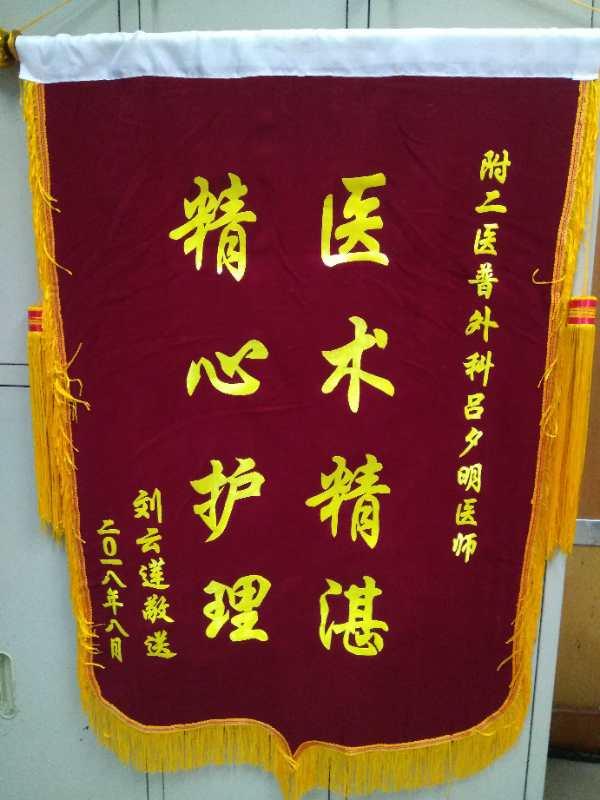 附二医普外科吕夕明医师
医术精湛
精心护理
刘云莲敬送
二〇一八年八月